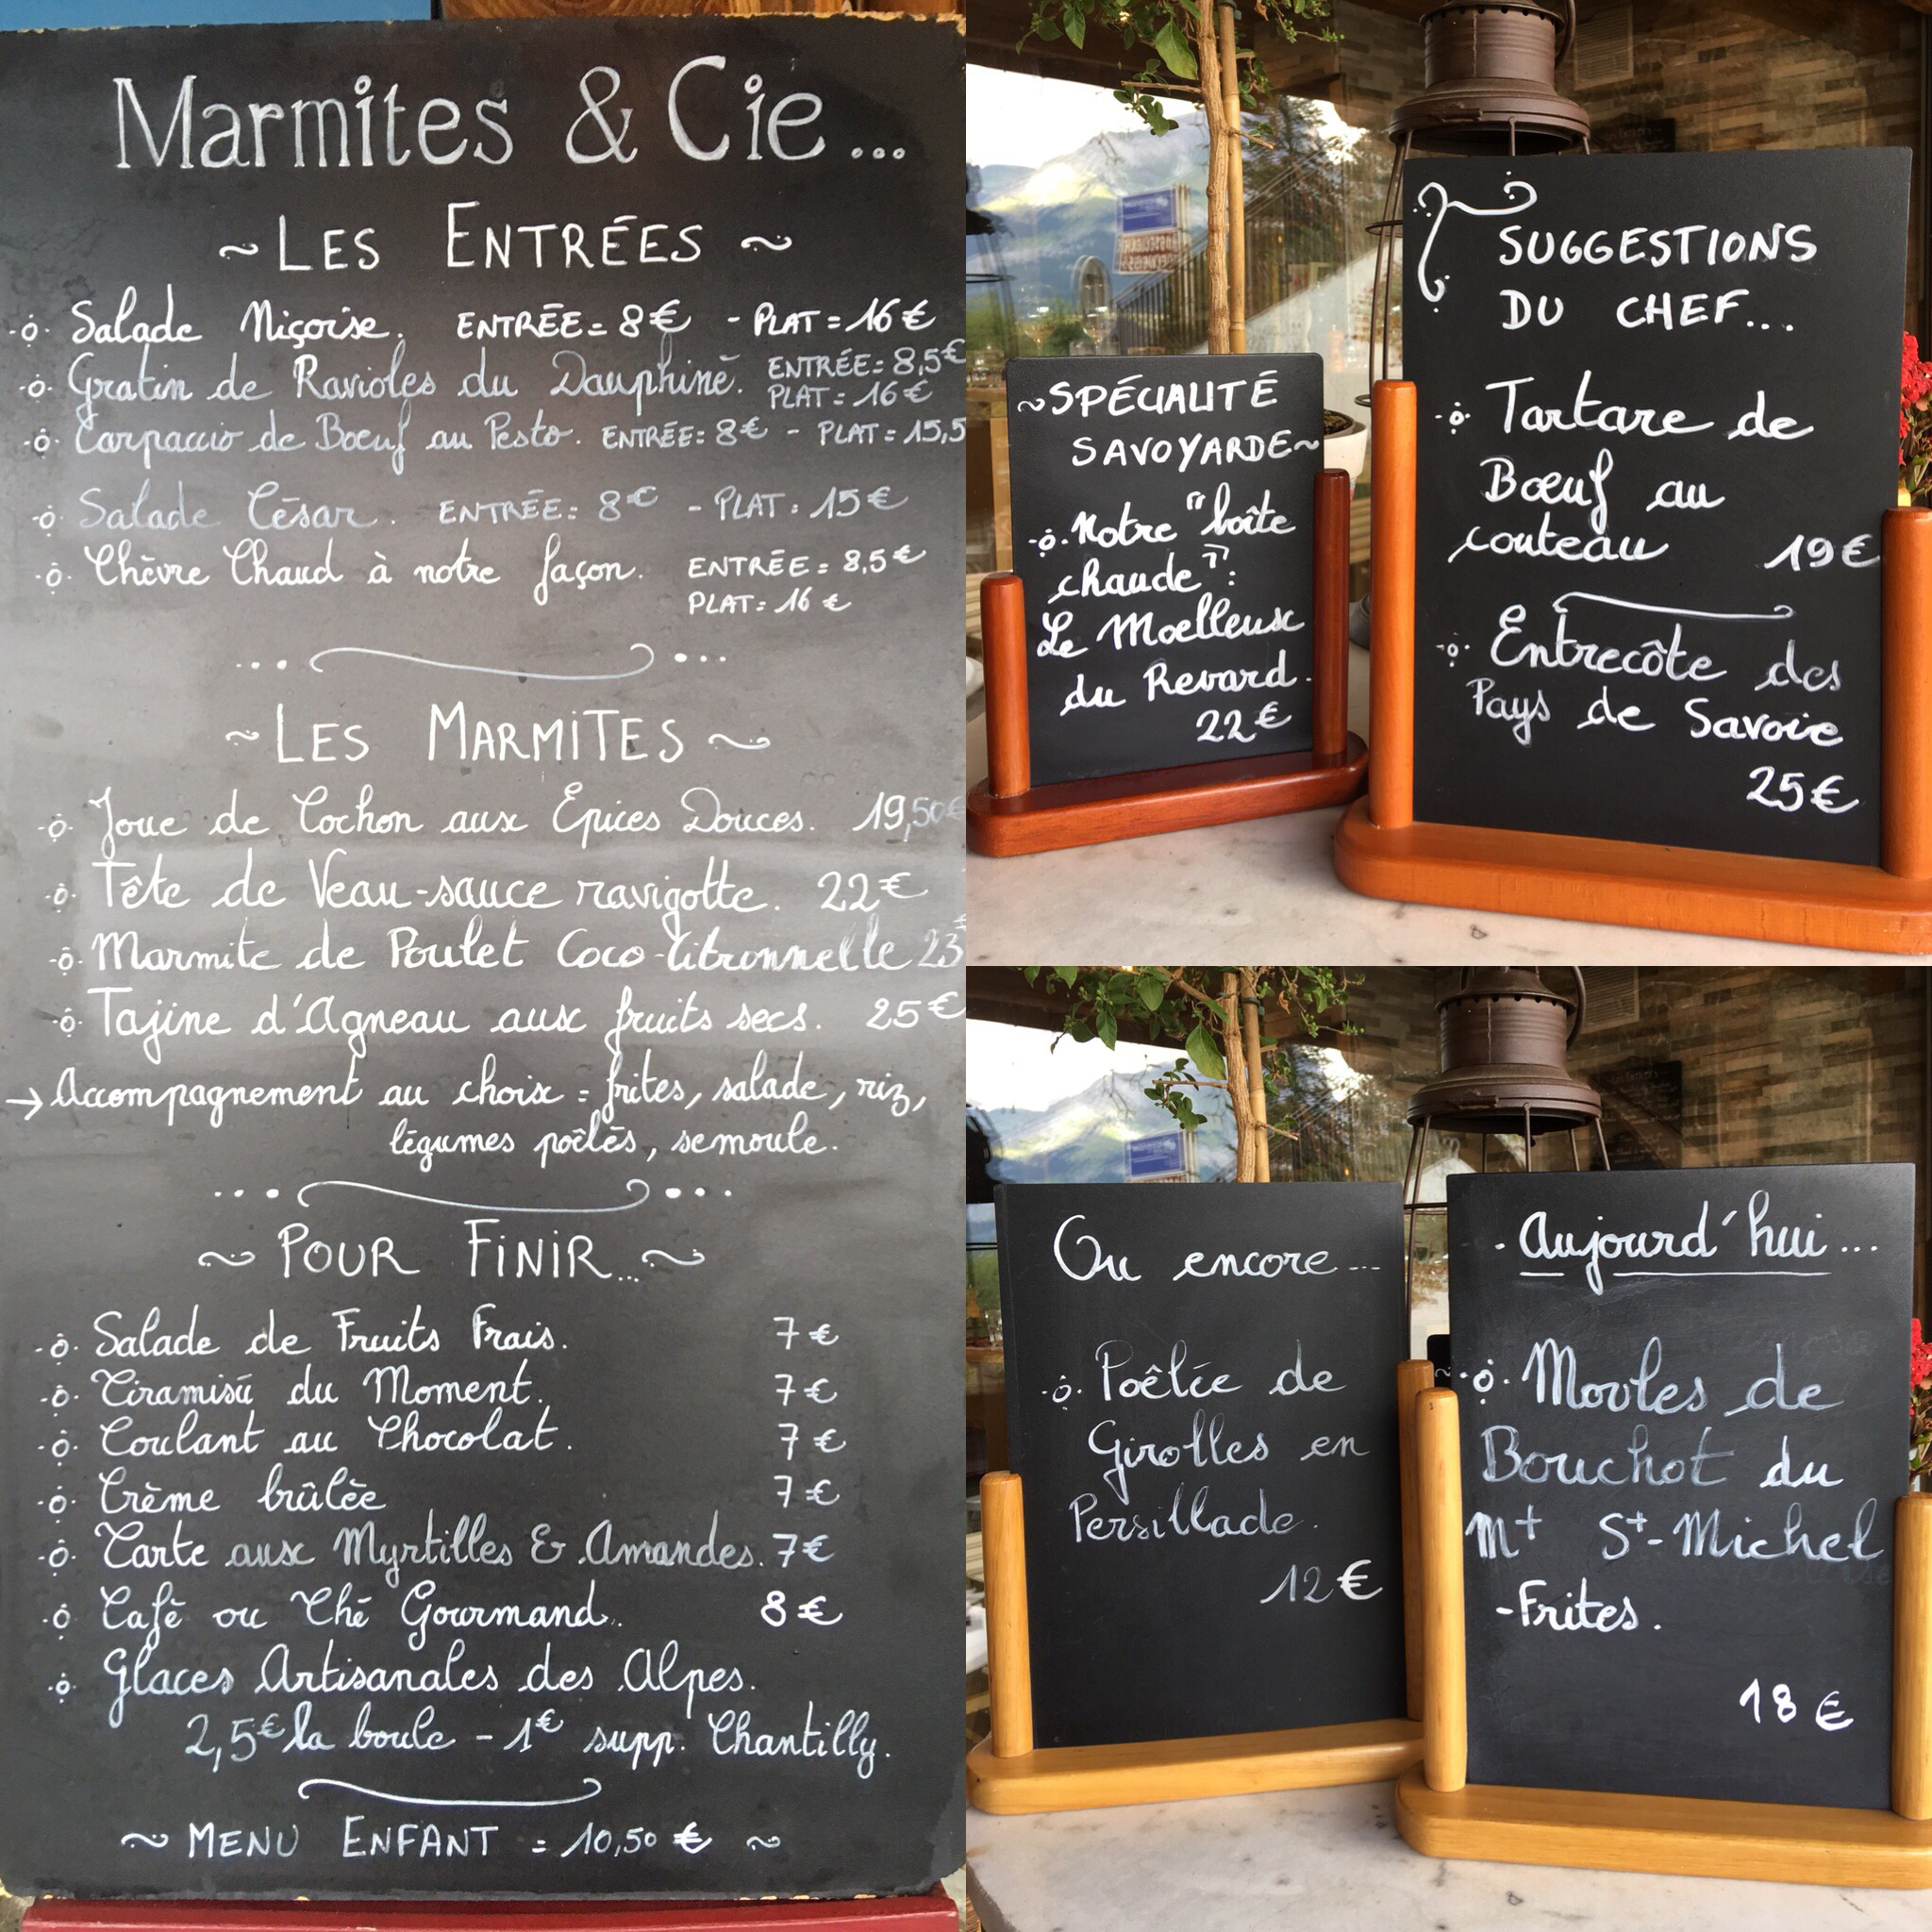 Marmites & Cie...
~ LES ENTRÉES ~
Salade Niçoise. ENTRÉE = 8€ - PLAT = 16€
Gratin de Ravioles du Dauphiné. ENTRÉE = 8,5€
PLAT = 16€
Carpaccio de Boeuf au Pesto. ENTRÉE: 8€ - PLAT = 15,5
Salade César. ENTRÉE: 8€ - PLAT: 15€
Chèvre Chaud à notre façon. ENTRÉE = 8,5€
PLAT: 16€
~ LES MARMITES ~
Joue de Cochon aux Épices Douces. 19,50€
Tête de Veau-sauce ravigotte. 22€
Marmite de Poulet Coco-Citronnelle 23€
Tajine d'Agneau aux fruits secs. 25€
→ Accompagnement au choix = frites, salade, riz,
légumes poêlés, semoule.
~ POUR FINIR... ~
Salade de Fruits Frais. 7€
Tiramisú du Moment. 7€
Coulant au Chocolat. 7€
Crème brûlée 7€
Tarte aux Myrtilles & Amandes. 7€
Café ou Thé Gourmand. 8€
Glaces Artisanales des Alpes.
2,5€ la boule - 1€ supp. Chantilly.
~ MENU ENFANT = 10,50 € ~
~ SPÉCIALITÉ
SAVOYARDE ~
Notre "boîte
chaude":
Le Moelleux
du Revard.
22€
SUGGESTIONS
DU CHEF...
Tartare de
Bœuf au
couteau 19€
Entrecôte des
Pays de Savoie
25€
Ou encore...
Poêlée de
Girolles en
Persillade.
12€
- Aujourd'hui...
Moules de
Bouchot du
Mt St-Michel
-Frites.
18 €